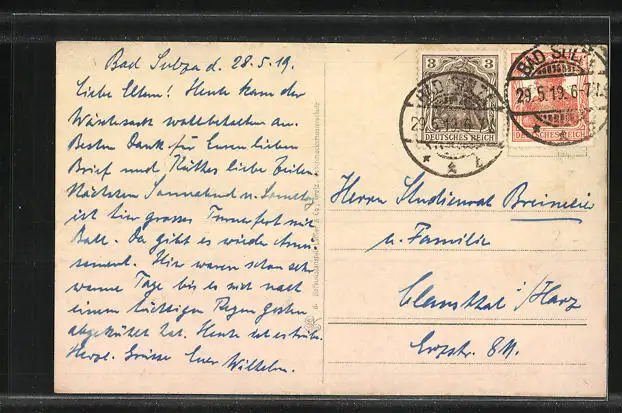 Bad Sulza d. 28.5.19.
Liebe Eltern! Heute kam der
Wäschesack wohlbehalten an.
Besten Dank für Euren lieben
Brief und Käthes liebe Zeilen
Nächsten Sonnabend u. Sonntag
ist hier grosses Turnerfest mit
Ball. Da gibt es wieder Amü-
sement. Hier waren schon sehr
warme Tage bis es sich nach
einem tüchtigen Regen gestern
abgekühlt hat. Heute ist es trübe.
Herzl. Grüsse Euer Wilhelm.
3 3
DEUTSCHES REICH
BAD SULZA
29.5.19.
BAD SULZA
29.5.19. 6-7
DEUTSCHES REICH
Herrn Studienrat Breimeier
u. Familie
Clausthal i/Harz
Erzstr.